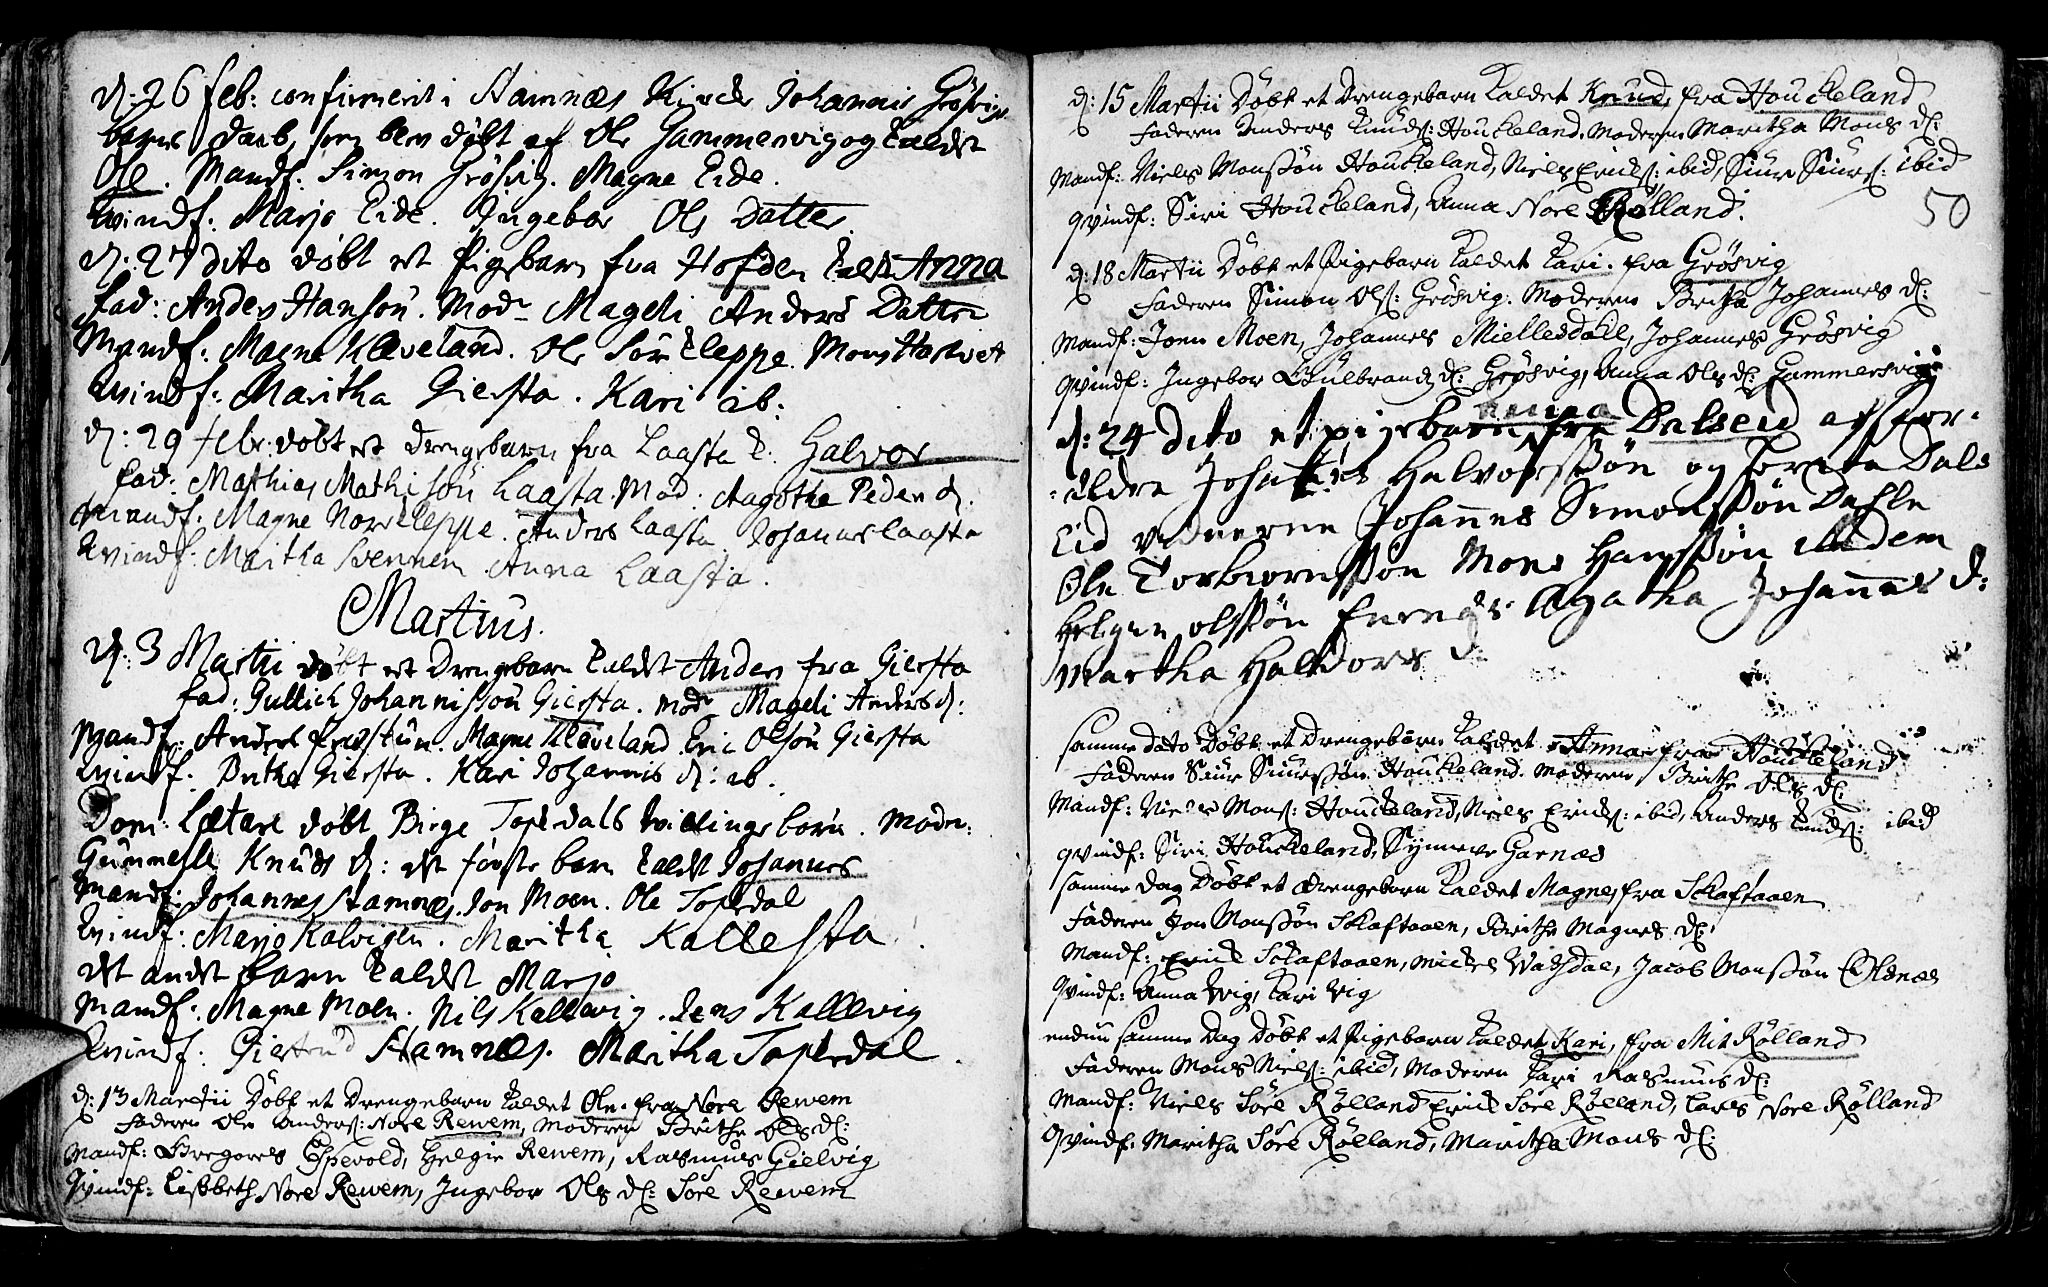 d: 26 feb: confirmerit i Stamnes Kirche Johannis Grösvigs
barns daab, som blev döbt af Ole Gammersvig og kaldet
Ole. Mandf: Simon Grösvig. Magne Eide.
Kvindf: Marjo Eide. Ingebor Ols Datter.
d: 27 dito döbt et Pigebarn fra Hofden kaldt Anna
fad: Anders Hanson. Mod. Mageli Anders Datter
Mandf: Magne Kleveland. Ole Sör Kleppe. Mons
Kvindf: Maritha Giersta. Kari ib:
d: 29 febr: döbt et drengebarn fra Laasta k. Halvor
fad: Mathias Mathison Laasta. Mod. Aagothe Peders d.
Mandf. Magne Norkleppe. Anders Laasta. Johannes Laasta
Kvindf: Maritha Svennem. Anna Laasta.
Martius.
d: 3 Martii döbt et Drengebarn kaldet Anders fra Giersta
fad: Gullich Johannisson Giersta. Mod. Mageli Anders d:
Mandf. Anders Presstun. Magne Kleveland Eric Olson Giersta
Kvindf. Brithe Giersta. Kari Johannis d: ib.
Dom: Lætare döbt Birge Toskedals tvillingeborn. Moder:
Gunnelle Knuds d: det förste barn kaldet Johannes
Mandf: Johannes Stamnes. Jon Moen. Ole Toskedal
Kvindf: Marjo Kalvigen. Maritha Kallesta
det andet barn kaldet Marjo
Mandf: Magne Moen. Nils Kallevig. Jens Kallevig
Kvindf. Giertrud Stamnes. Maritha Toskedal.
d: 13 Martii Döbt et Drengebarn kaldet Ole. fra Nore Rewem
Faderen Ole Anders: Nore Rewem, Moderen Brithe Ols d:
Mandf: Gregores Espevold, Helgie Rewem, Rasmus Gielvig
Qvindf: Lisbeth Nore Rewem, Ingebor Ols d: Söre Rewem
d: 15 Martii Döbt et Drengebarn kaldet Knud, fra Houckeland
Faderen Anders Knuds: Houckeland, Moderen Maritha Mons d:
Mandf: Niels Monssön Houckeland, Niels Erichs: ibid, Siur Siurs: ibid
qvindf: Siri Houckeland, Anna Nore Rölland.
50
d: 18 Martii Döbt et Pigebarn kaldet Kari. fra Grösvig
Faderen Simon Ols: Grösvig. Moderen Britha Johannes d:
Mandf: Jonn Moen, Johannes Miellesdale, Johannes Grösvig
Qvindf: Ingebor Gulbrands d: Grösvig, Anna Ols d: Gammersvig
anna
d: 24 dito et pigebarn fra Dalseid af for-
:ældre Johannes Halvorssön og Dals
Eid vidnerne Johannes Simonssön Dahle
Ole Torbiornssön Mons Hanssön
Helgie olssön Agatha Johannes d:
Martha Haldors d:
samme dato Döbt et Drengebarn kaldet Anna fra Houckeland
Faderen Siur Siurssön Houckeland. Moderen Brithe Ols d:
Mandf: Niels Mons: Houckeland, Niels Erichs: ibid, Anders Knuds: ibid
qvindf: Siri Houckeland, Synneve Garnæs
samme dag Döbt et drengebarn kaldet Magne, fra Skaftaaen
Faderen Jon Monssön Skaftaaen, Brithe Magnes d:
Mandf: Erich Schaftaaen, Michel Wassdal, Jacob Monssön Olsnæs
Qvindf: Anna Vig, Kari Vig
endnu samme Dag Döbt et Pigebarn kaldet Kari, fra Mit Rölland
Faderen Mons Niels: ibid, Moderen Kari Rasmus d:
Mandf: Niels Söre Rölland Erich Söre Rölland, Lars Nore Rölland
Qvindf: Maritha Söre Rölland, Maritha Mons d: